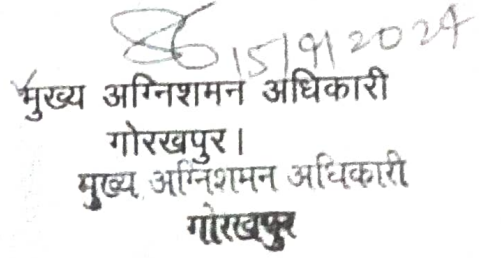 15/9/2024
मुख्य अग्निशमन अधिकारी
गोरखपुर।
मुख्य अग्निशमन अधिकारी
गोरखपुर